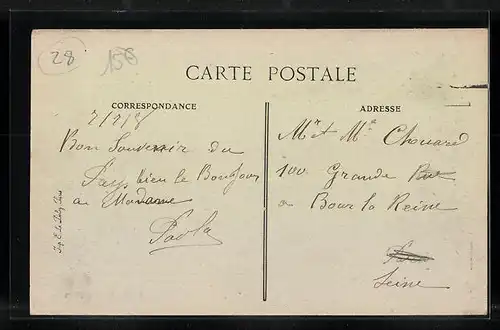 28
158
CARTE POSTALE
CORRESPONDANCE
ADRESSE
Bon Souvenir du
Pays bien le Bonjour
a Madame
Paola
Mr et Me Chouard
100 Grande Rue
a Bour la Reine
Seine